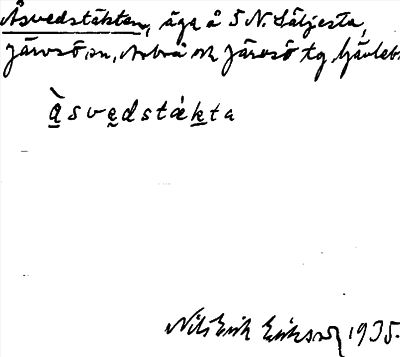 Åsvedstäkten, äga å 5 N. Säljesta,
Järvsö sn, Arbrå och Järvsö tg, Gävlebs
å̀svedstäkta
Nils Erik Eriksson 1935.